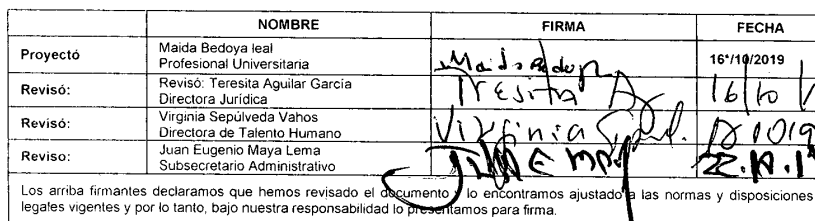 NOMBRE FIRMA FECHA
Proyectó Maida Bedoya leal
Profesional Universitaria Maida Bedoya 16*/10/2019
Revisó: Revisó: Teresita Aguilar García
Directora Jurídica Teresita A 16/10/
Revisó: Virginia Sepúlveda Vahos
Directora de Talento Humano Virginia
Reviso: Juan Eugenio Maya Lema
Subsecretario Administrativo
Los arriba firmantes declaramos que hemos revisado el documento y lo encontramos ajustado a las normas y disposiciones
legales vigentes y por lo tanto, bajo nuestra responsabilidad lo presentamos para firma.